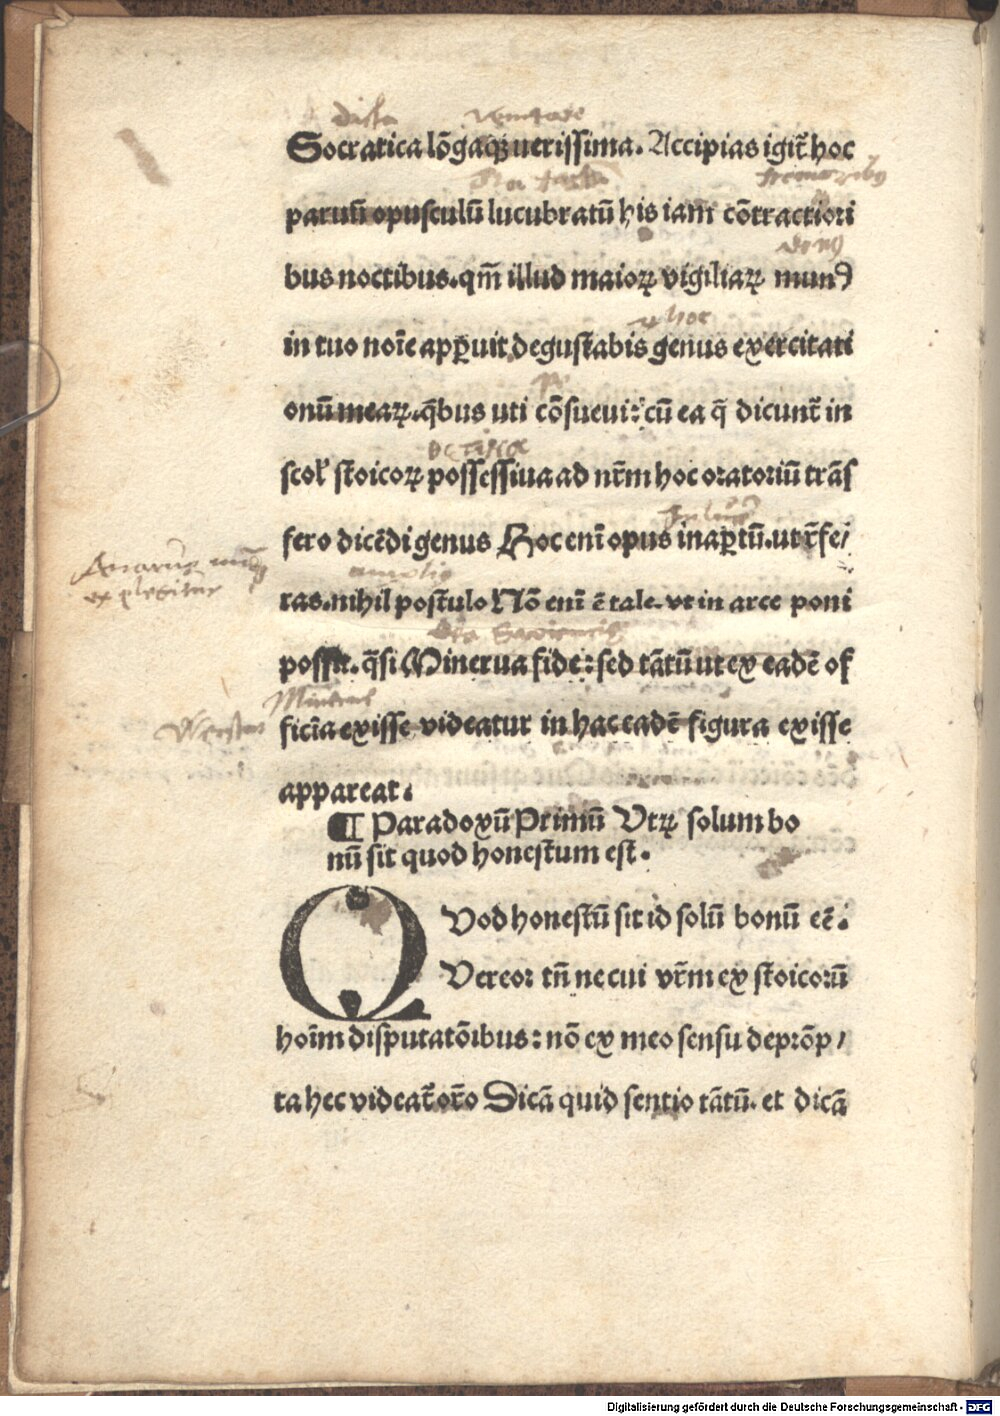 dicta
Socratica lõgaq̃ꝫ uerissima. Accipias igit̃ hoc
paruũ opusculũ lucubratũ his iam cõtractiori
bus noctibus. qm̃ illud maioꝝ vigiliaꝝ munꝰ
hoc
in tuo noĩe apꝑuit degustabis genus exercitati
onũ meaꝝ. q̃bus uti cõsueui: cũ ea q̃ dicunt̃ in
scol̃ stoicoꝝ possessiua ad nr̃m hoc oratoriũ trãs
fero dicẽdi genus Hoc enĩ opus inaꝑtũ. ut r̃fe/
ras. nihil post̃ulo Nõ enĩ ẽ tale. vt in arce poni
possit. q̃si Minerua fide: sed tãtũ ut ex eadẽ of
ficĩa exisse videatur in hac eadẽ figura exisse
appareat.
¶ Paradoxũ Primũ Utꝝ solum bo
nũ sit quod honestum est.
QVod honestũ sit id solũ bonũ eẽ.
Vereor tñ ne cui vr̃m ex stoicorũ
hoĩm disputatõibus: nõ ex meo sensu deprõp/
ta hec videãt̃ ot̃o Dicã quid sentio tãtũ. et dicã
Digitalisierung gefördert durch die Deutsche Forschungsgemeinschaft - DFG